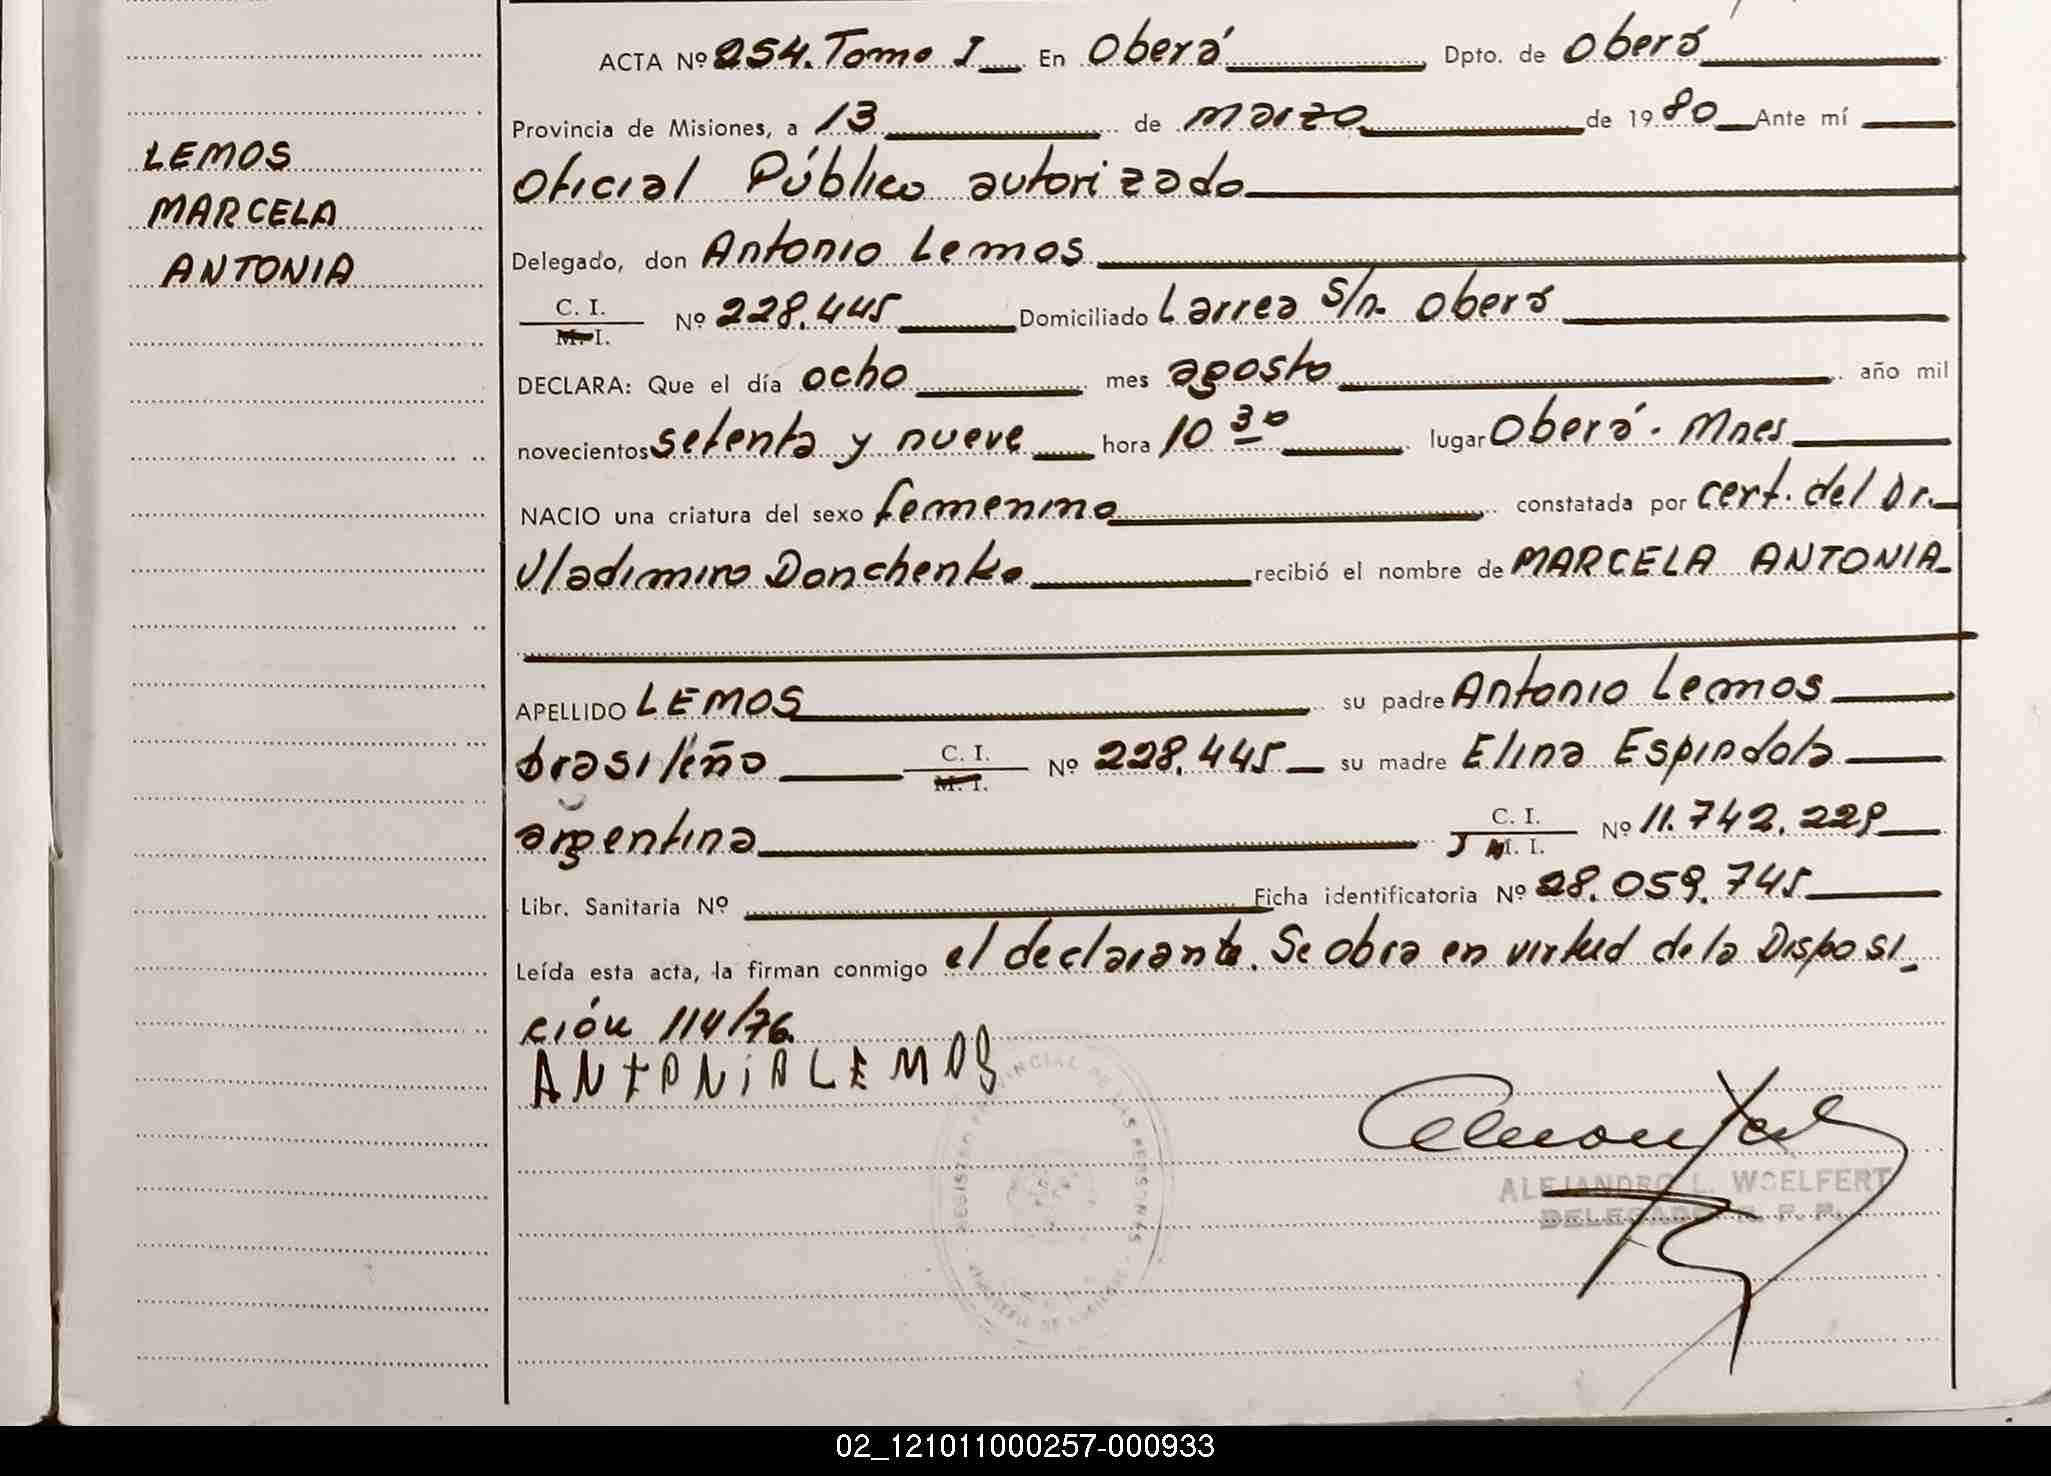 LEMOS
MARCELA
ANTONIA
ACTA Nº 254. Tomo I En Oberá Dpto. de Oberá
Provincia de Misiones, a 13 de marzo de 1980 Ante mí
Oficial Público autorizado
Delegado, don Antonio Lemos
C. I.
M. I. Nº 228.445 Domiciliado Larrea s/n. Oberá
DECLARA: Que el día ocho mes agosto año mil
novecientos setenta y nueve hora 10 30 lugar Oberá - Mnes
NACIO una criatura del sexo femenino constatada por cert. del Dr.
Vladimiro Donchenko recibió el nombre de MARCELA ANTONIA
APELLIDO LEMOS su padre Antonio Lemos
brasileño C. I. M. I. Nº 228.445 su madre Elina Espindola
argentina C. I. M. I. Nº 11.742.229
Libr. Sanitaria Nº Ficha identificatoria Nº 28.059.745
Leída esta acta, la firman conmigo el declarante. Se obra en virtud de la Disposi-
ción 114/76.
ANTONIO LEMOS
REGISTRO PROVINCIAL DE LAS PERSONAS
ALEJANDRO L. WOELFERT
DELEGADO R. P. P.
02_121011000257-000933